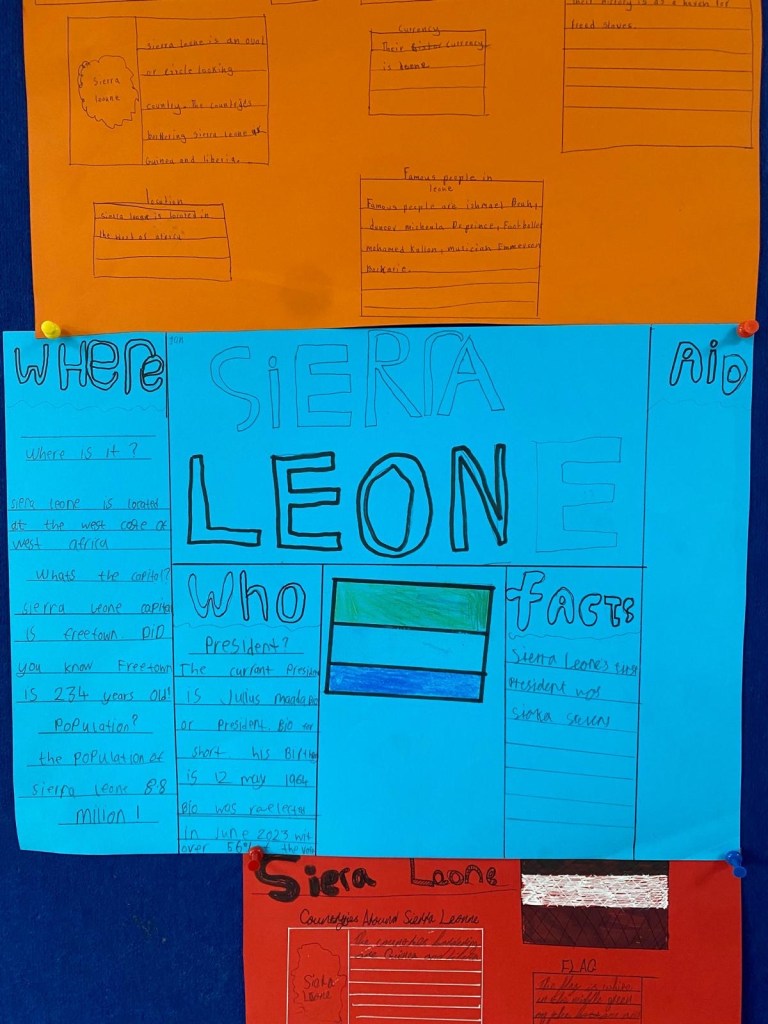 Sierra Leone is an oval
or circle looking
country. The counteies
bordering Sierra Leone
Guinea and liberia.
Sierra
leone
Currency
Their currency
is leone
bread stoves.
location
Sierra leone is located in
the west of
Famous people in
leone
Famous people are ishmael Beah,
dancer micheala Deprince, Footballer
mohamed Kallon, musician Emmerson
WHere
Where is it?
sierra leone is located
at the west coste of
west africa
Whats the capitol?
sierra leone capital
is freetown. DID
you know Freetown
is 234 years old!
POPulation?
the POPulation of
sierra leone 8.8
million!
SiERRA
LEONE
AiD
Who
President?
The currant President
is Julius maada Bio
or President Bio for
short his Birthday
is 12 may 1964
Bio was reelected
in June 2023 wit
over 56% of the vote
FACTS
Sierra Leone's first
President was
Siaka Stevens
Siera Leone
Around Sierra Leonne
Sierra
Leone
FLAG
The flag is white
in the middle green